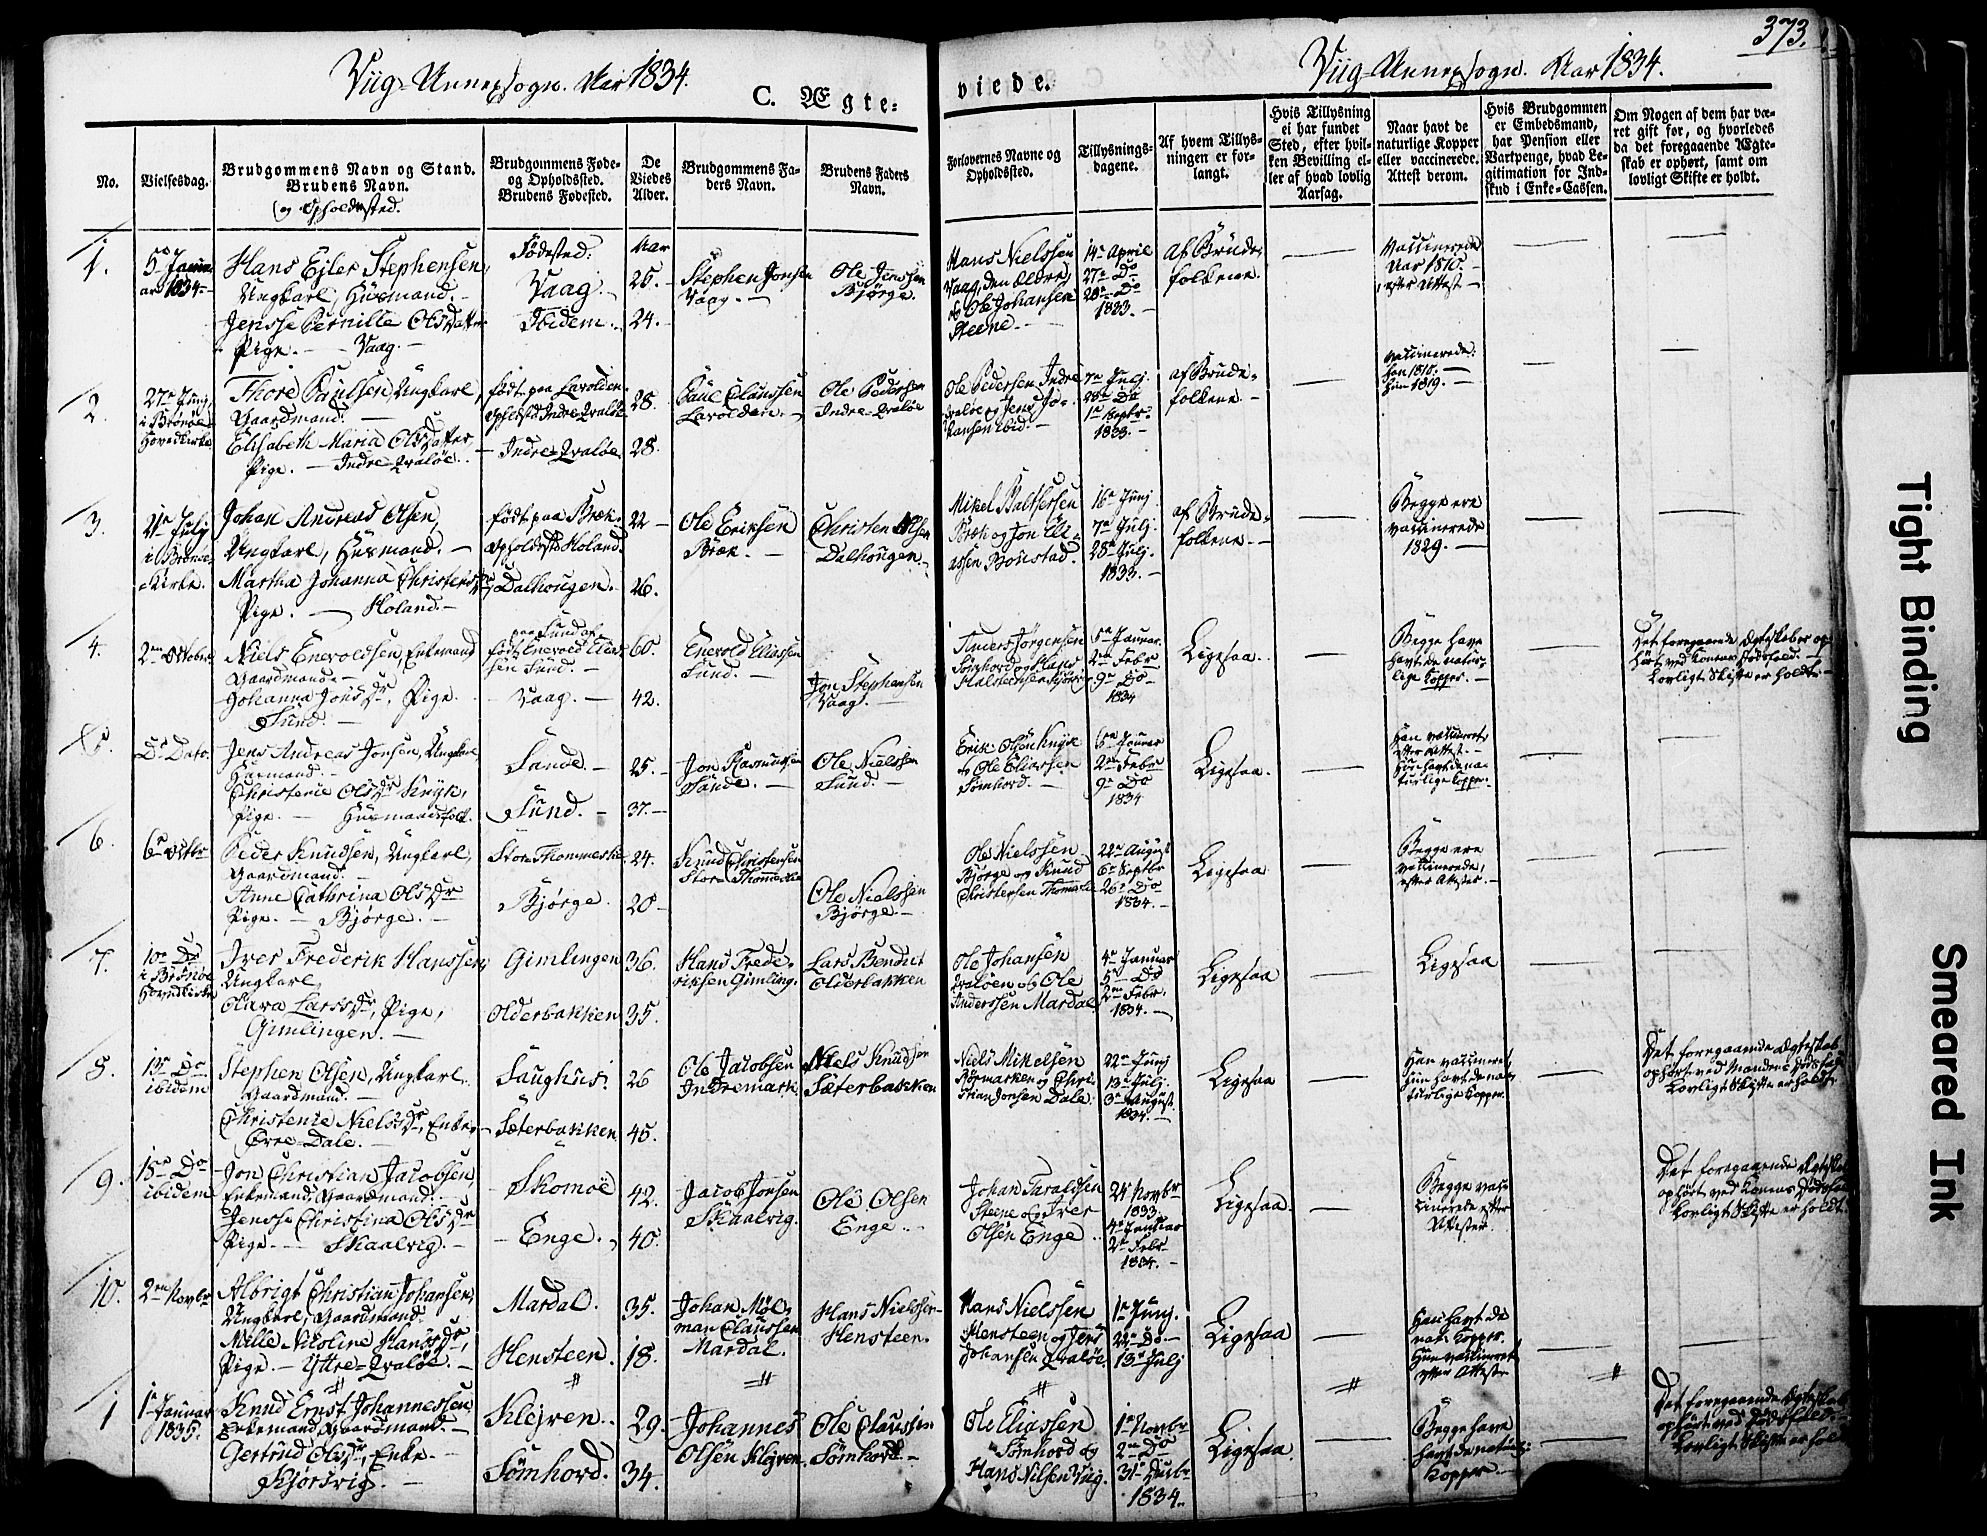 373.
Viig-Annexsogn. Aar 1834.
Viig-Annexsogn. Aar 1834.
C. Ægte-
viede.
No.
Vielsesdag.
Brudgommens Navn og Stand.
Brudens Navn.
og Opholdssted.
Brudgommens Føde-
og Opholdssted.
Brudens Fødested.
De
Viedes
Alder.
Brudgommens Fa-
ders Navn.
Brudens Faders
Navn.
Forlovernes Navne og
Opholdssted.
Tillysnings-
dagene.
Af hvem Tillys-
ningen er for-
langt.
Hvis Tillysning
ei har fundet
Sted, efter hvil-
ken Bevilling el-
ler af hvad lovlig
Aarsag.
Naar havt de
naturlige Kopper
eller vaccinerede.
Attest derom.
Hvis Brudgommen
er Embedsmand,
har Pension eller
Vartpenge, hvad Le-
gitimation for Ind-
skud i Enke-Cassen.
Om Nogen af dem har væ-
ret gift før, og hvorledes
da det foregaaende Ægte-
skab er ophørt, samt om
lovligt Skifte er holdt.
1.
5te Janu-
ar 1834.
Hans Ejler Stephensen,
Ungkarl, Huusmand.
Jensse Pernille OlsDatter
Pige. — Vaag.
Fødested:
Vaag.
Ibidem.
Aar
25.
24.
Stephen Jonsen
Vaag.
Ole Jenssen
Bjørge.
Hans Nielssen
Vaag, den ældre,
og Ole Johansen
Steene.
14de April
27de Do
28de Do
1833.
af Brude-
folkene.
Vaccinerede
Aar 1810.
efter Attest
2.
27de Julj
i Brønøe
Hovedkirke
Thore Paulssen, Ungkarl,
Gaardmand.
Elisabeth Maria OlsDatter
Pige. — Indre-Qvaløe.
født paa Lavolden
opholdsted Indre Qvaløe
Indre-Qvaløe
28.
28.
Paul Claussen
Lavolden.
Ole Pedersen
Indre-Qvaløe
Ole Pedersen Indre
Qvaløe og Jens Jo-
hansen ibid.
7de Julj.
28de Do
1ste Septbr.
1833.
af Brude-
folkene.
vaccinerede.
han 1810.
hun 1819.
3.
Julj
i Brønøe
Kirke.
Johan Andreas Olsen,
Ungkarl, Huusmand.
Martha Johanna ChristensDr
Pige. — Holand.
født paa Bræk.
Opholdsted Holand.
Dalhougen.
22
26.
Ole Eriksen
Bræk.
Christen Olsen
Dalhougen.
Mikel Baltzersen
Bræk og Jon Eli-
assen Bonstad.
16de Junj
7de Julj.
28de Julj.
1833.
af Brude-
folkene.
Begge ere
vaccinerede
1829.
4.
2den October
Niels Enevoldsen, Enkemand
Gaardmand
Johanna JonsDr, Pige
Sund.
paa Sund af
født Enevold Elias-
sen Sund.
Vaag.
60.
42.
Enevold Eliassen
Sund.
Jon Stephensen
Vaag.
Anders Jørgensen
Sømhord og Hans
5te Januar.
2den Febr
9de Do
1834
Ligesaa.
Begge have
havt de natur-
lige Kopper.
Det foregaaende Ægteskaber op-
hørt ved Konens Dødsfald.
Lovligt Skifte er holdt
5.
Do Dato.
Jens Andreas Jonsen, Ungkarl
Huusmand.
Christenie OlsDr Knyk,
Pige. — Huusmandsfolk.
Sande.
Sund.
25.
37.
Jon Rasmussen
Sande.
Ole Nielssen
Sund.
Erik Olsen Knyk
og Ole Eliassen
Sømhord.
5te Januar
2den Febr
9de Do
1834
Ligesaa.
Han vaccineret
efter Attest.
Hun havt de na-
turlige Kopper.
6.
6te Octbr
Peder Knudsen, Ungkarl,
Gaardmand.
Anne Cathrina OlsDr
Pige. — Bjørge.
Store Thommeskie
Bjørge.
24.
20
Knud Christensen
Store Thommeskie
Ole Nielssen
Bjørge.
Ole Nielssen
Bjørge og Knud
Christensen
22de August
6te Septbr
26de Do
1834.
Ligesaa
Begge ere
vaccinerede,
efter Attester.
7.
10de Do
i Brønøe
Hovedkirke
Iver Frederik Hanssen,
Ungkarl,
Olava LarsDr, Pige,
Gimlingen.
Gimlingen
Olderbakken
36.
35.
Hans Frede-
riksen Gimling.
Lars Bendict
Olderbakken
Ole Johansen
Qvaløen og Ole
Anderssen Mardal
4de Januar
5te Do
2den Febr.
1834.
Ligesaa
Ligesaa
8.
Do
ibidem
Stephen Olsen, Ungkarl.
Gaardmand.
Christenie NielsDr, Enke
Øvre-Dale.
Saughus.
Sæterbakken
26
45.
Ole Jacobsen
Indremark.
Niels Knudsen
Sæterbakken
Niels Mikelsen
Rømarken og Chri-
stian Jonsen Dale.
22de Junj
13de Julj.
3de August
1834.
Ligesaa
Han vaccineret
Hun havt de nat-
turlige Kopper.
Det foregaaende Ægteskab
ophørt ved Mandens Dødsfald
Lovligt Skifte er holdt
9.
15de Do
ibidem
Jon Christian Jacobsen,
Enkemand, Gaardmand.
Jensse Christina OlsDr
Pige. — Skaalvig.
Skomoe
Enge.
42.
40.
Jacob Jonsen
Skaalvig.
Ole Olsen
Enge.
Johan Taraldsen
Steene og Iver
Olsen Enge
24 Novbr
1833.
4de Januar
2den Febr
1834.
Ligesaa.
Begge vac-
cinerede efter
Attester.
Det foregaaende Ægteskab
ophørt ved Konens Dødsfald
Lovligt Skifte er holdt.
10.
2den Novbr
Albrigt Christian Johansen,
Ungkarl, Gaardmand.
Mille Nicoline HansDr,
Pige. — Yttre-Qvaløe.
Mardal.
Hensteen.
35.
18.
Johan Møl-
man Claussen
Mardal.
Hans Nielssen
Hensteen.
Hans Nielssen
Hensteen og Jens
Johansen Qvaløe.
1ste Junj.
22de Do.
13de Julj
Ligesaa
Han havt de
nat. Kopper.
Hun vaccineret
efter Attest
1
1ste Januar
1835.
Knud Ernst Johannessen
Enkemand, Gaardmand.
Gertrud OlsDr, Enke
Kjørsvig.
Klejven.
Sømhord.
29.
34.
Johannes
Olsen Klejven.
Ole Claussen
Sømhord.
Ole Eliassen
Sømhord og
Hans Nilsen Viig.
1ste Novbr
2den Do
31te Decbr
1834.
Ligesaa
Begge have
havt de naturli:
Kopper.
Det foregaaende Ægteskab
ophørt ved Dødsfald.
Lovligt Skifte er holdt
Tight Binding
Smeared Ink